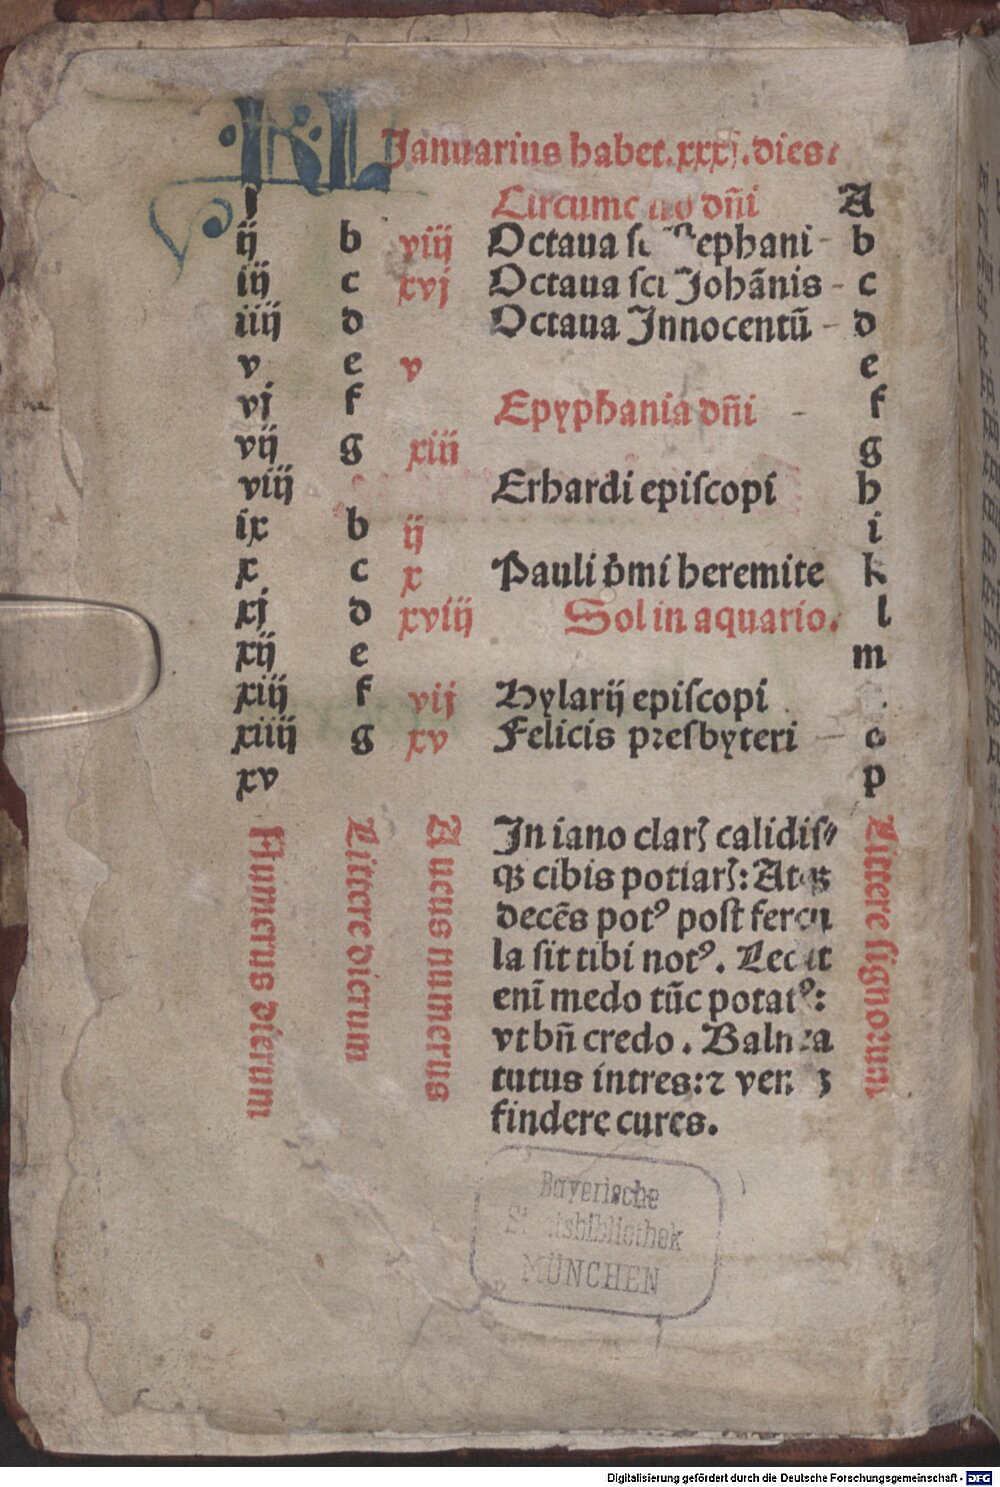 KL Januarius habet .xxxj. dies.
j Circumc io dñi A
ij b viij Octaua ſc ephani b
iij c xvj Octaua ſci Johãnis c
iiij d Octaua Innocentũ d
v e v e
vj f Epyphania dñi f
vij g xiij g
viij Erhardi epiſcopi h
ix b ij i
x c x Pauli p̉mi heremite k
xj d xviij Sol in aquario. l
xij e m
xiij f vij Hylarij epiſcopi
xiiij g xv Felicis preſbyteri o
xv p
Numerus dierum
Littere dierum
Aureus numerus
In iano clarꝭ calidiſ⸗
qꝫ cibis potiarꝭ: Atqꝫ
decẽs potꝰ poſt fercu
la ſit tibi notꝰ. Ledit
enĩ medo tũc potatꝰ:
vt bñ credo. Balnea
tutus intres: ⁊ venꝫ
findere cures.
Littere ſignorum
Bayerische
Staatsbibliothek
MÜNCHEN
Digitalisierung gefördert durch die Deutsche Forschungsgemeinschaft - DFG